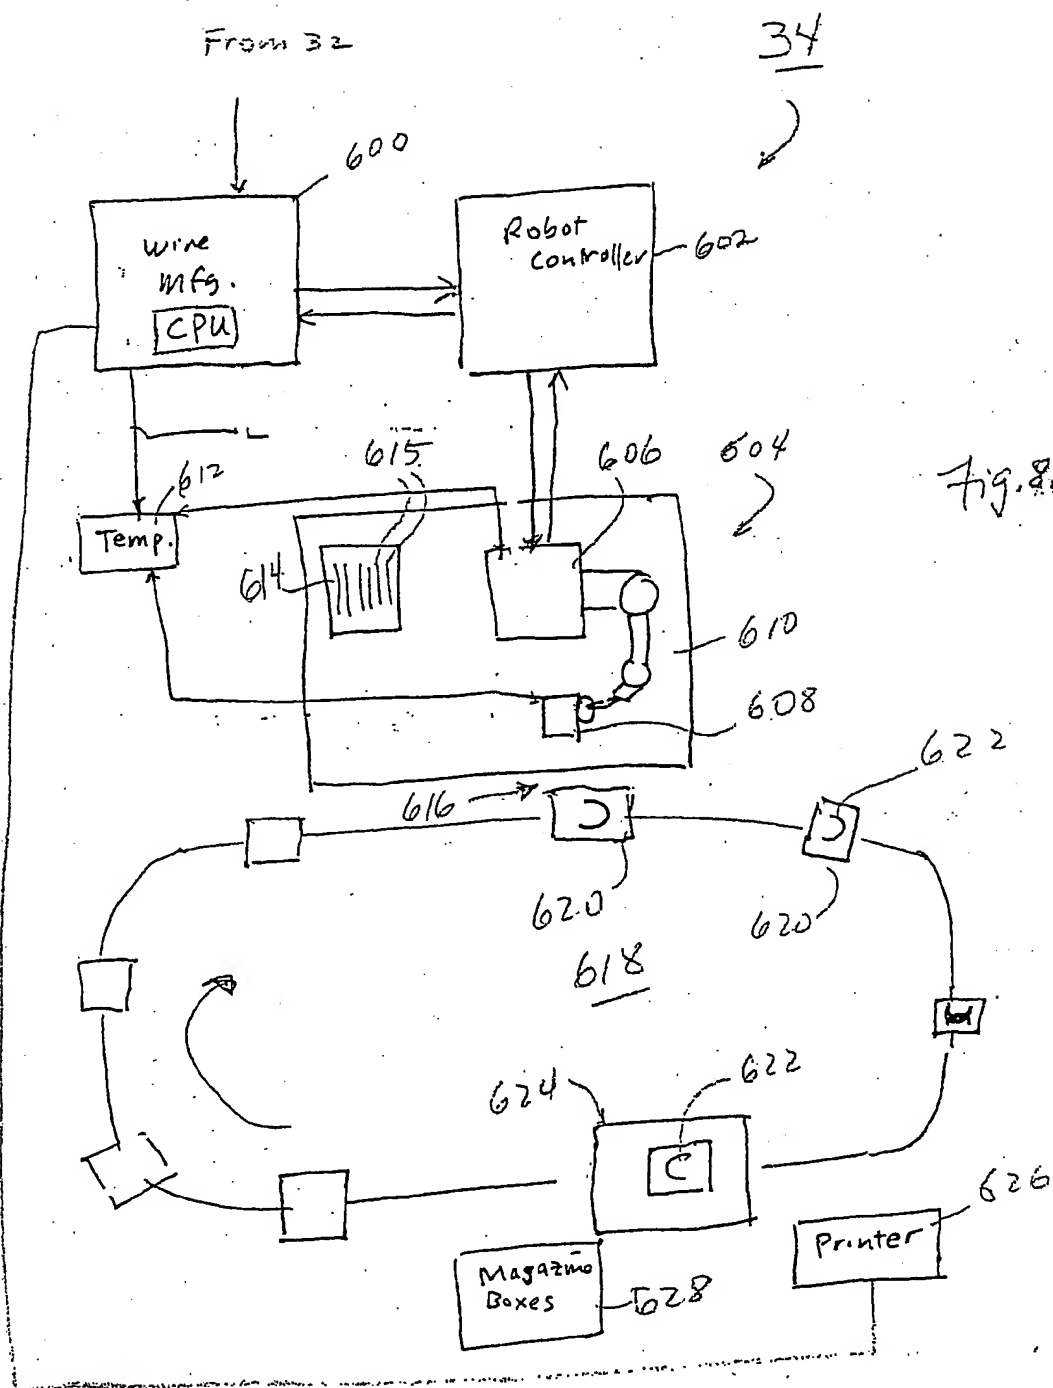 From 32
34
600
Wire
Mfg.
CPU
Robot
Controller
602
L
612
615
606
604
Fig. 8
Temp.
614
610
608
622
616
620
620
618
622
624
626
Printer
Magazine
Boxes
628